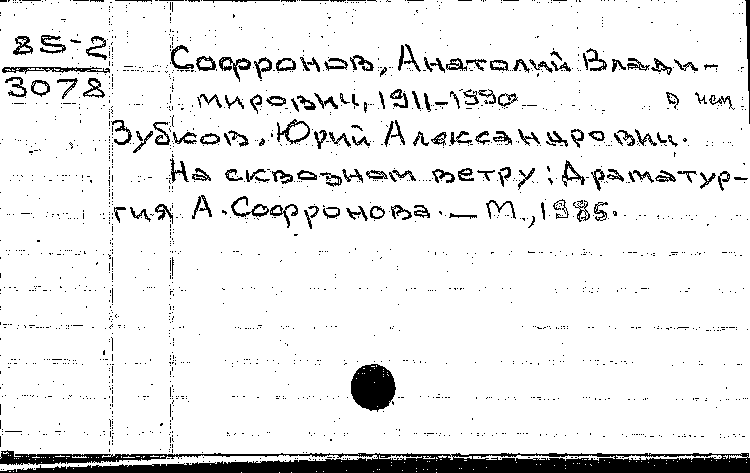 85-2
3078
Софронов, Анатолий Влади-
мирович, 1911-1990 о нем
Зубков, Юрий Александрович.
На сквозном ветру: Драматур-
гия А. Софронова. — М., 1985.